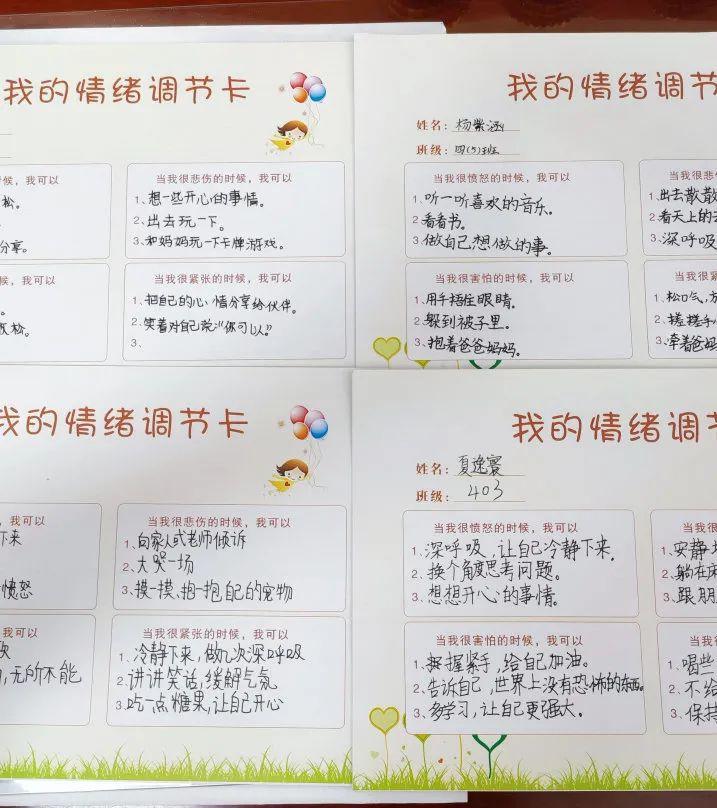 我的情绪调节卡
时候，我可以
松。
分享。
当我很悲伤的时候，我可以
1、想一些开心的事情。
2、出去玩一下。
3、和妈妈玩一下卡牌游戏。
候，我可以
松。
当我很紧张的时候，我可以
1、把自己的心情分享给伙伴。
2、笑着对自己说：“你可以”
3、
我的情绪调节
姓名：杨紫涵
班级：四(5)班
当我很愤怒的时候，我可以
1、听一听喜欢的音乐。
2、看看书。
3、做自己想做的事。
当我很悲伤的
1、出去散散
2、看天上的
3、深呼吸
当我很害怕的时候，我可以
1、用手捂住眼睛。
2、躲到被子里。
3、抱着爸爸妈妈。
当我很紧
1、松口气，
2、搓搓手
3、牵着爸妈
我的情绪调节卡
，我可以
下来
愤怒
当我很悲伤的时候，我可以
1、向家人或老师倾诉
2、大哭一场
3、摸一摸、抱一抱自己的宠物
我可以
，无所不能
当我很紧张的时候，我可以
1、冷静下来，做几次深呼吸
2、讲讲笑话，缓解气氛
3、吃一点糖果，让自己开心
我的情绪调节
姓名：夏逸
班级：403
当我很愤怒的时候，我可以
1、深呼吸，让自己冷静下来.
2、换个角度思考问题。
3、想想开心的事情。
当我很悲
1、安静
2、躺在
3、跟朋
当我很害怕的时候，我可以
1、握紧手，给自己加油。
2、告诉自己，世界上没有恐怖的东西。
3、多学习，让自己更强大。
当我很
1、喝些
2、不给
3、保持